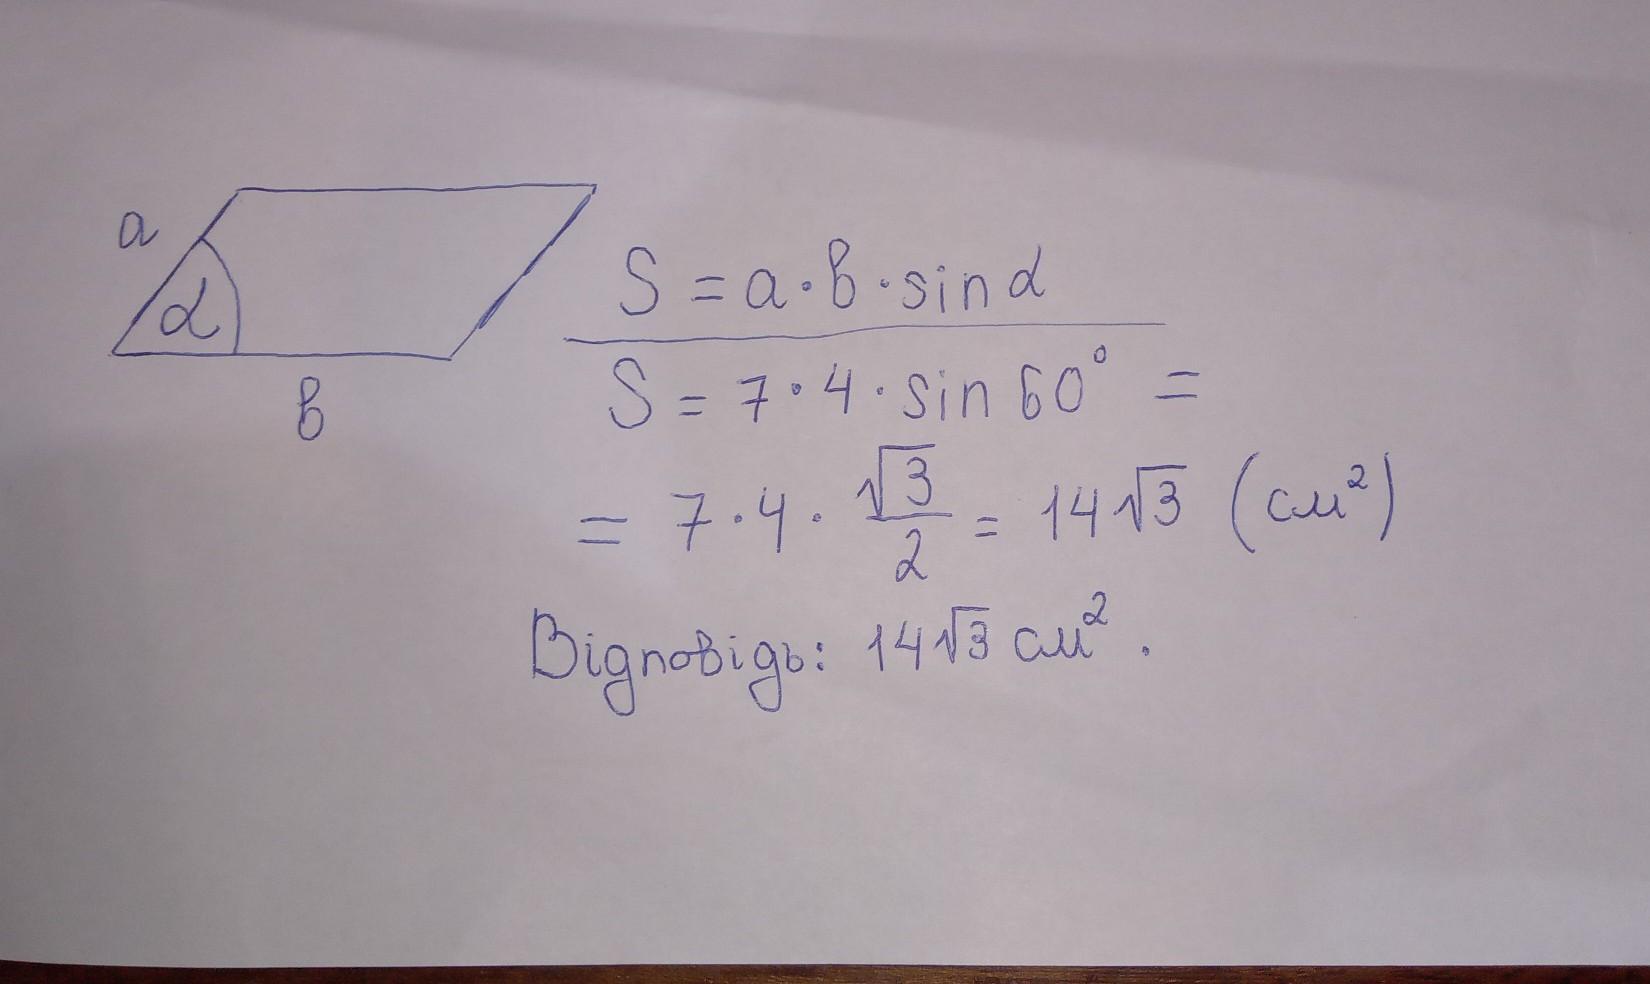 a
α
b
S = a · b · sin α
S = 7 · 4 · sin 60° =
= 7 · 4 · √3/2 = 14√3 (см²)
Відповідь: 14√3 см².